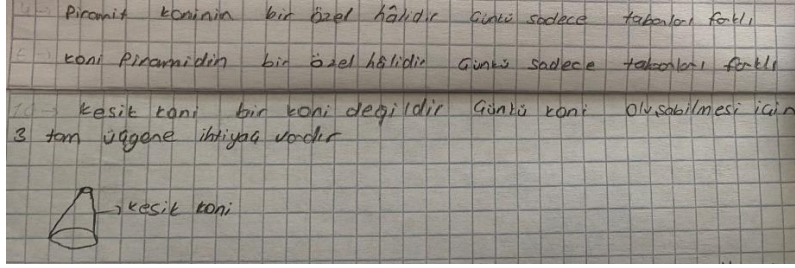 Piramit koninin bir özel hâlidir Çünkü sadece tabanları farklı
Koni Piramidin bir özel hâlidir Çünkü sadece tabanları farklı
Kesik koni bir koni değildir Çünkü koni oluşabilmesi için
3 tam üçgene ihtiyaç vardır
kesik koni